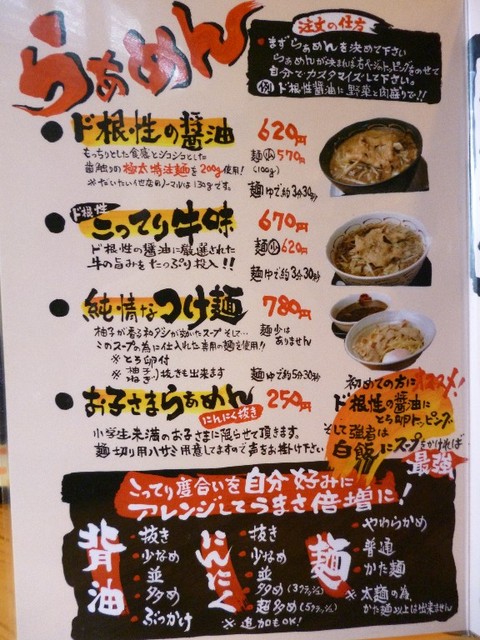 らぁめん
注文の仕方
●まずらぁめんを決めて下さい
らぁめんが決まれば右ページトッピングをのせて
自分でカスタマイズして下さい。
例 ド根性醤油に野菜と肉盛り!!
●ド根性の醤油 620円
もっちりとした食感とシコシコとした
歯触りの極太特注麺を200g使用!
※だいたい他店のノーマルは130gです。
麺小570円
(100g)
麺ゆで約3分30秒
●ド根性こってり牛味 670円
ド根性の醤油に厳選された
牛の旨みをたっぷり投入!!
麺小620円
麺ゆで約3分30秒
●純情なつけ麺 780円
柚子が香る和ダシが効いたスープ そして…
このスープの為に仕入れた専用の麺を使用!!
※とろ卵付
※柚子 ねぎ 抜きも出来ます
麺少は
ありません
麺ゆで約5分30秒
●お子さまらぁめん 250円
にんにく抜き
小学生未満のお子さまに限らせて頂きます。
麺切り用ハサミ用意してますので声をお掛け下さい
初めての方にオススメ!
ド根性の醤油に
とろ卵トッピング
そして強者は
白飯にスープをかければ
最強
こってり度合いを自分好みに
アレンジしてうまさ倍増に!
背油
・抜き
・少なめ
・並
・多め
・ぶっかけ
にんにく
・抜き
・少なめ
・並
・多め(3クラッシュ)
・超多め(5クラッシュ)
※追加もOK!
麺
・やわらかめ
・普通
・かた麺
※太麺の為、
かた麺以上は出来ません